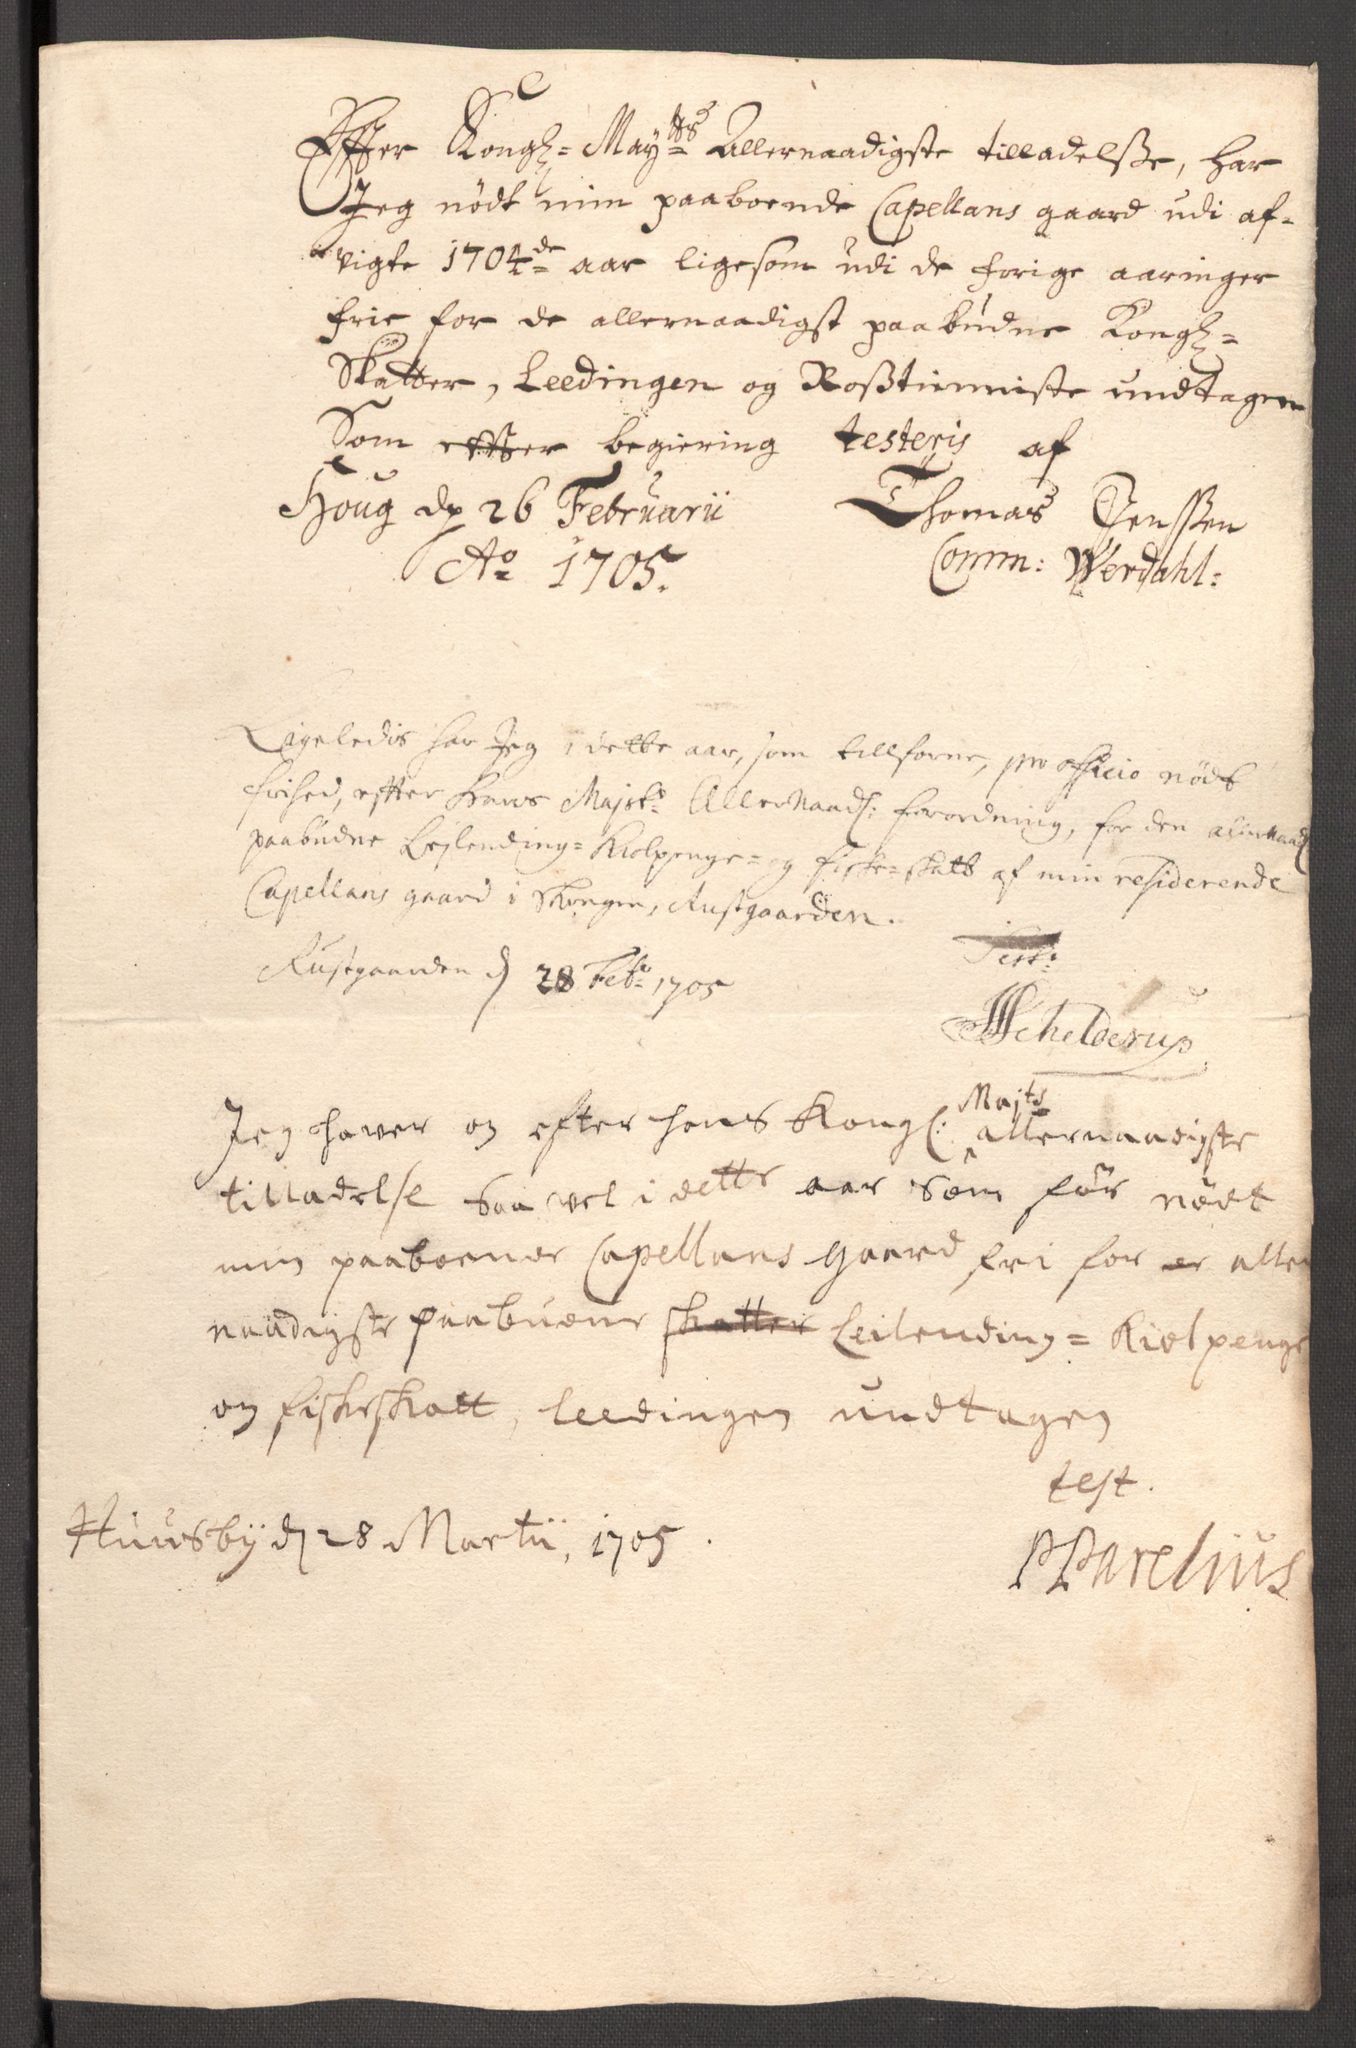 Effter Kongl= May^tts Allernaadigste tilladelsse, har
Jeg nödt min paaboende Capellans gaard udi af-
vigte 1704^de aar ligesom udi de forige aaringer
frie for de allernaadigst paabudne Kongl=
Skatter, Leedingen og Rosstienniste undtagen
Som effter begiering testeris af
Houg dn 26 Februarii Thomas Jenssen
A° 1705. Comm: Werdahl:
Ligeledis har Jeg i dette aar, som tillforne, pro officio nödt
frihed, effter Hans Majsts AllerNaadl: forordning, for den allernaadl
paabudne Leylending= Kiolpenge= og fiske=skatt af min residerende
Capellans gaard i Skongen, Rustgaarden.
Rustgaarden d 28 Feb: 1705 Test:
Schelderup
Majts
Jeg hawer og efter hans Kongl: allernaadigste
tilladelse saa vel i dette aar som för nödt
min paaboende Capellans gaard fri for de aller
naadigste paabudne skatter Leilending= Kiolpenge
og fiskeskatt, leedingen undtagen
test.
Huusby d 28 Martii, 1705.
PParelius